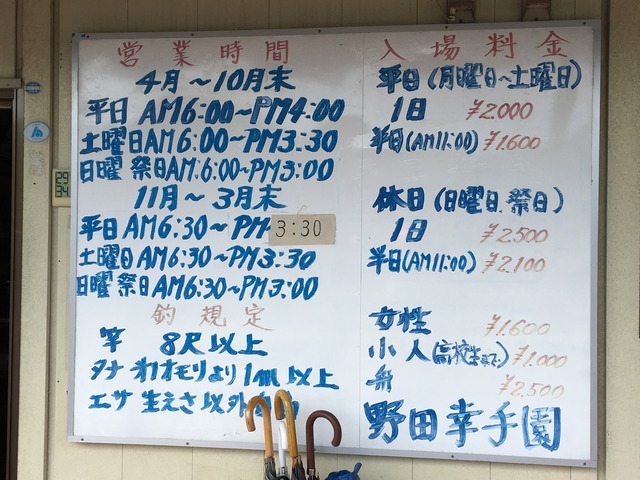 営業時間
4月～10月末
平日 AM6:00～PM4:00
土曜日AM6:00～PM3:30
日曜 祭日AM6:00～PM3:00
11月～3月末
平日 AM6:30～PM 3:30
土曜日AM6:30～PM3:30
日曜 祭日AM6:30～PM3:00
釣規定
竿 8尺以上
タナ オモリより1m以上
エサ 生えさ以外
入場料金
平日(月曜日～土曜日)
1日 ¥2.000
半日(AM11:00) ¥1.600
休日(日曜日.祭日)
1日 ¥2,500
半日(AM11:00) ¥2,100
女性 ¥1.600
小人(高校生まで) ¥1.000
¥2,500
野田幸手園